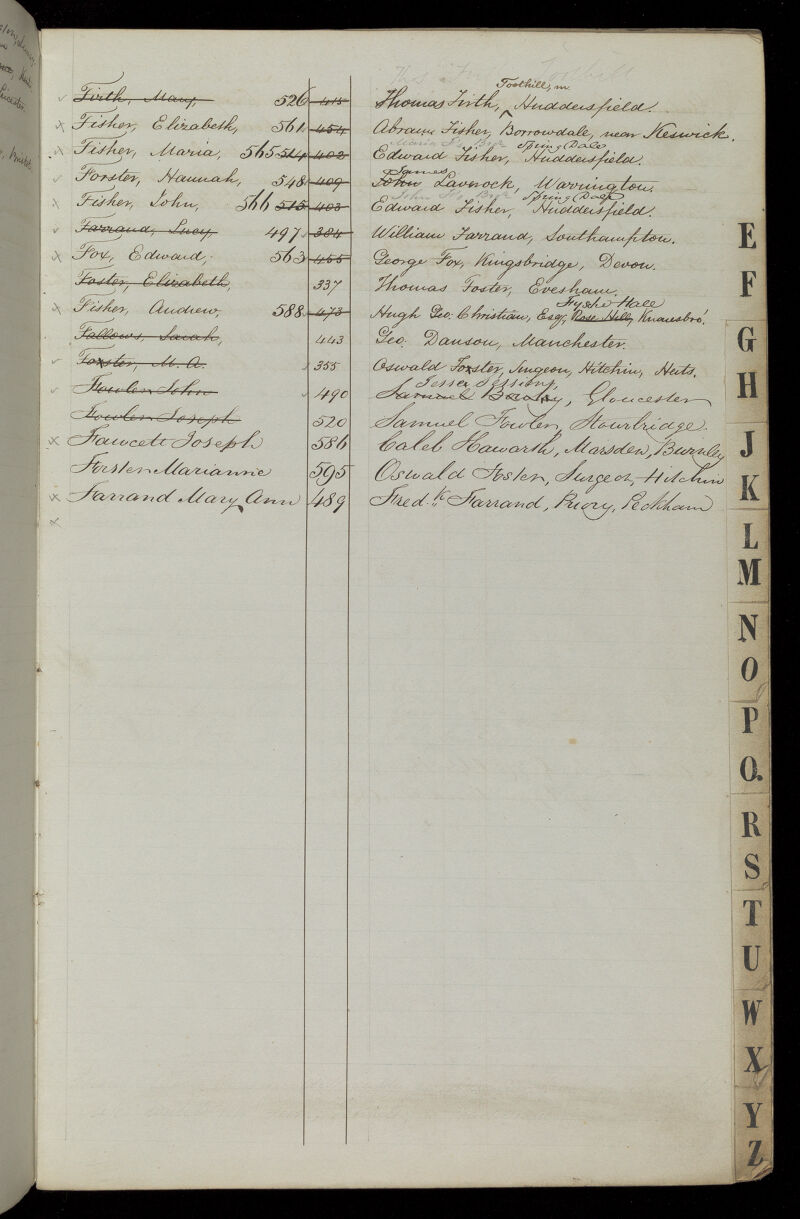 Toothill, nr
Firth, Mary, 526 415 Thomas Firth, Huddersfield.
x Fisher, Elizabeth, 561 454 Abram Fisher, Borrowdale, near Keswick.
Spring Dale
x Fisher, Maria, 565 514 402 Edward Fisher, Huddersfield.
James
Forster, Hannah, 548 409 John Laverock, Warrington.
Spring Dale
x Fisher, John, 566 515 403 Edward Fisher, Huddersfield.
Farrand, Lucy, 497 384 William Farrand, Southampton.
x Fox, Edward, 563 455 George Fox, Kingsbridge, Devon.
Foster, Elizabeth, 337 Thomas Foster, Evesham.
Fysche Hall
x Fisher, Andrew, 588 473 Hugh Geo. Christian, Esq, Rose Hill, Knaresbro'.
Fallows, Sarah, 443 Geo. Danson, Manchester.
Forster, M. A. 355 Oswald Forster, Surgeon, Hitchin, Herts.
Jesse Sessions,
Fowler John 490 Samuel Bowly, Gloucester
Fowler Joseph 520 Samuel Fowler, Stourbridge.
x Fawcett Joseph 586 Caleb Haworth, Marsden, Burnley
Forster Marianne 595 Oswald Foster, Surgeon, Hitchin
x Farrand Mary Ann 489 Fred.k Farrand, Priory, Peckham
x
E
F
G
H
J
K
L
M
N
O
P
Q.
R
S
T
U
W
X
Y
Z